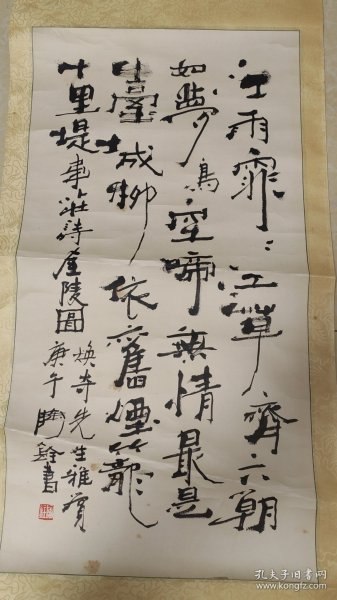 江雨霏〻江草齊六朝
如夢鳥空啼無情最是
臺城柳依舊煙籠
十里堤韋莊詩金陵圖
煥奇先生雅賞
庚午書
孔夫子旧书网